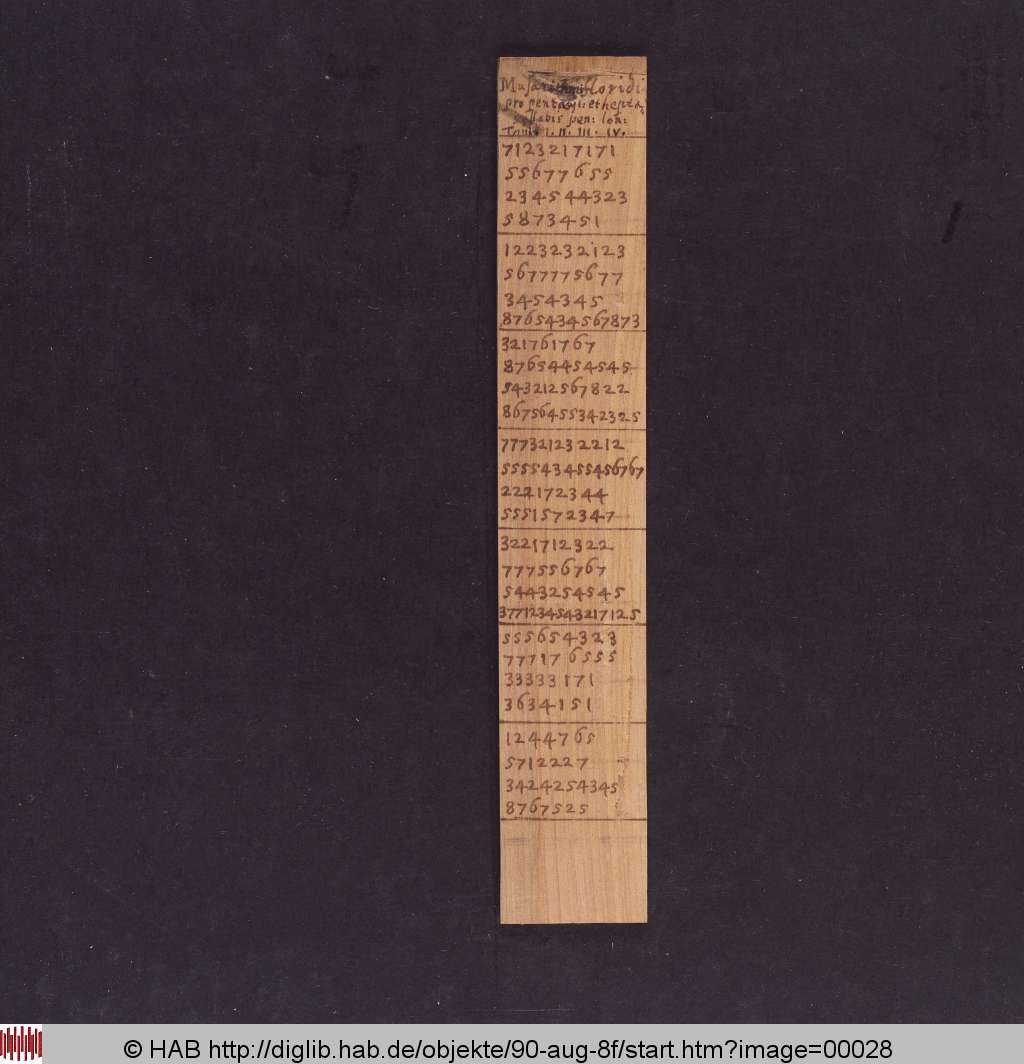 Musarithmi floridi
pro pentasyl: et hepta
syllabis pen: lon:
Toni I. II. III. IV.
7123217171
55677655
2345 44323
5873451
1223232123
5677775677
3454345
8765434567873
321761767
87654454545
54321256782 2
8675645534 2325
77732123 2212
5555434554 56767
222172344
555157 2347
3221712322
777556767
5443254545
37712345432171 25
555654323
77717 6555
33333 171
3634151
1244765
5712227
3424254345
8767525
© HAB http://diglib.hab.de/objekte/90-aug-8f/start.htm?image=00028